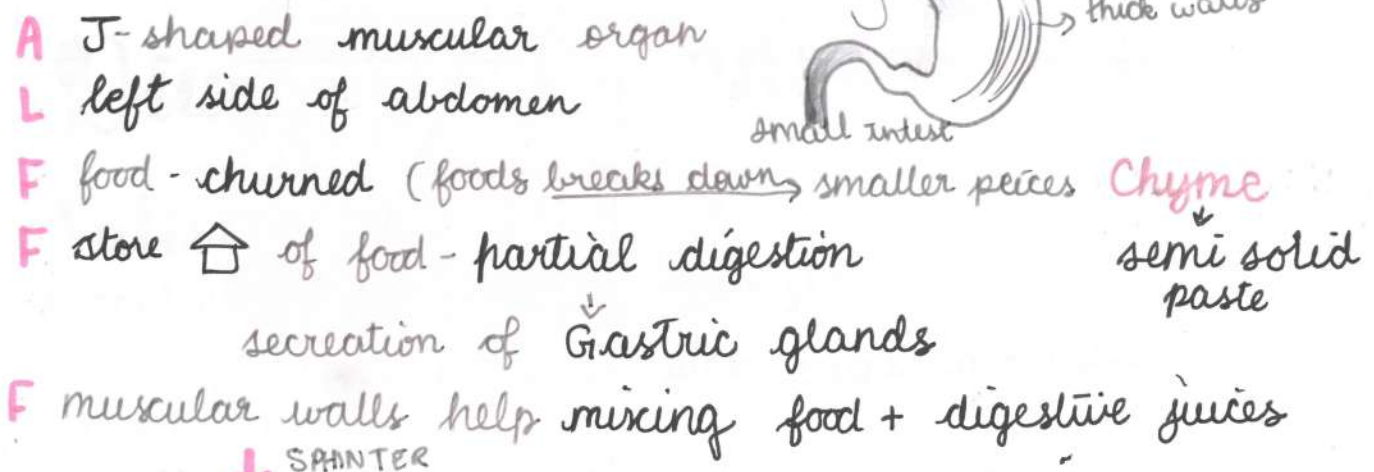 thick walls
A J-shaped muscular organ
L left side of abdomen
small intest
F food - churned (foods breaks down → smaller peices Chyme
↓
F store of food - partial digestion semi solid
↓ paste
secreation of Gastric glands
F muscular walls help mixing food + digestive juices
SPHINTER